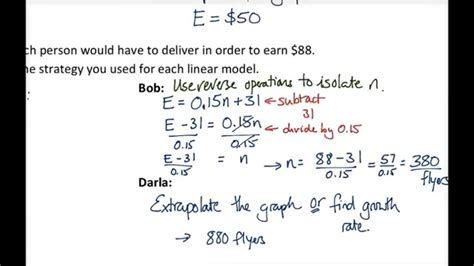 E = $50
ch person would have to deliver in order to earn $88.
he strategy you used for each linear model.
Bob: Use reverse operations to isolate n.
E = 0.15n + 31 ← subtract 31
E - 31 = 0.15n ← divide by 0.15
0.15 0.15
E - 31 = n → n = 88 - 31 = 57 = 380 flyers
0.15 0.15 0.15
Darla:
Extrapolate the graph or find growth rate.
→ 880 flyers